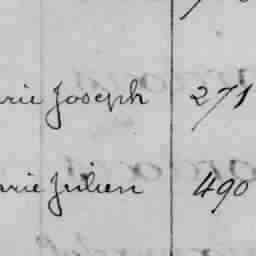 rie Joseph 271
rie Julien 490